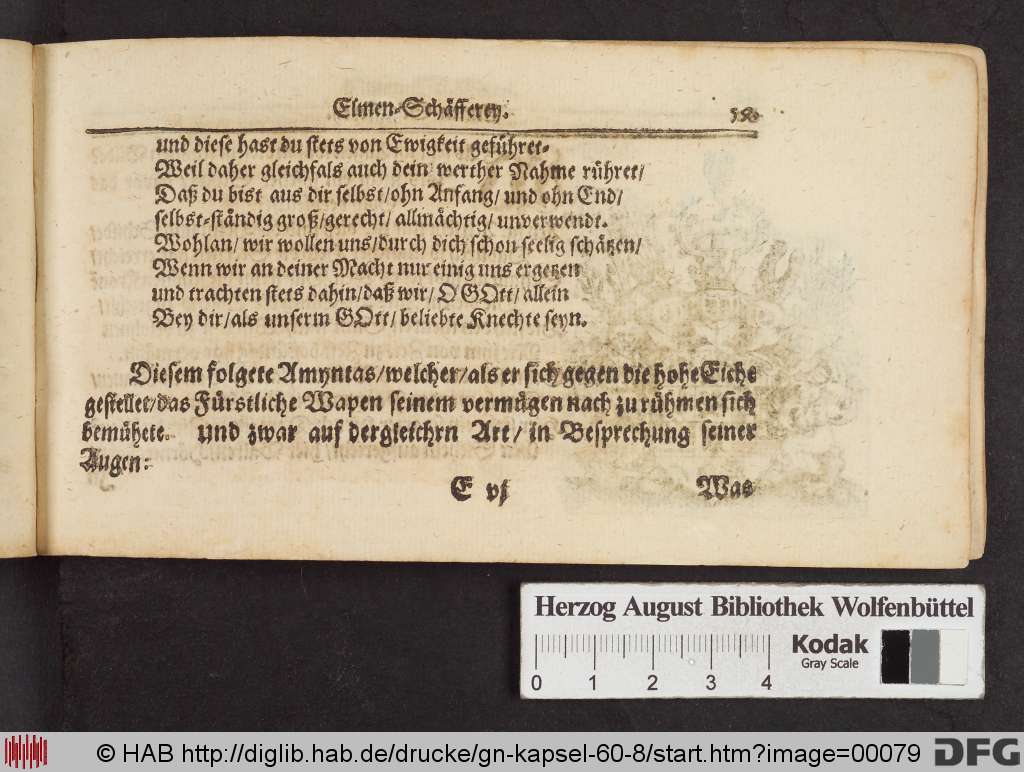 Elmen-Schäfferey.
und diese hast du stets von Ewigkeit geführet-
Weil daher gleichfals auch dein werther Nahme rühret/
Daß du bist aus dir selbst/ohn Anfang/ und ohn End/
selbst-ständig groß/gerecht/ allmächtig/ unverwendt.
Wohlan/ wir wollen uns/durch dich schon seelig schätzen/
Wenn wir an deiner Macht nur einig uns ergetzen
und trachten stets dahin/daß wir/ O GOtt/ allein
Bey dir/als unserm GOtt/ beliebte Knechte seyn.
Diesem folgete Amyntas/welcher/als er sich gegen die hohe Eiche
gestellet/das Fürstliche Wapen seinem vermügen nach zu rühmen sich
bemühete. und zwar auf dergleichrn Art/ in Besprechung seiner
Augen:
E vj Was
Herzog August Bibliothek Wolfenbüttel
Kodak
Gray Scale
0 1 2 3 4
© HAB http://diglib.hab.de/drucke/gn-kapsel-60-8/start.htm?image=00079
DFG